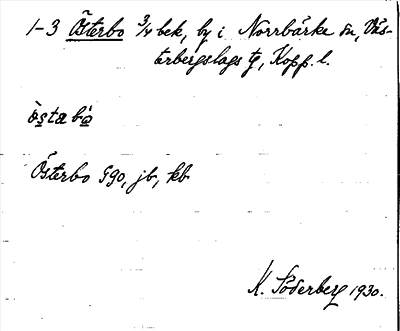 1-3 Österbo 3/4 bek, by i Norrbärke sn, Väs-
terbergslags tg, Kopp. l.
östa bo
Österbo G90, jb, kb
K. Söderberg 1930.